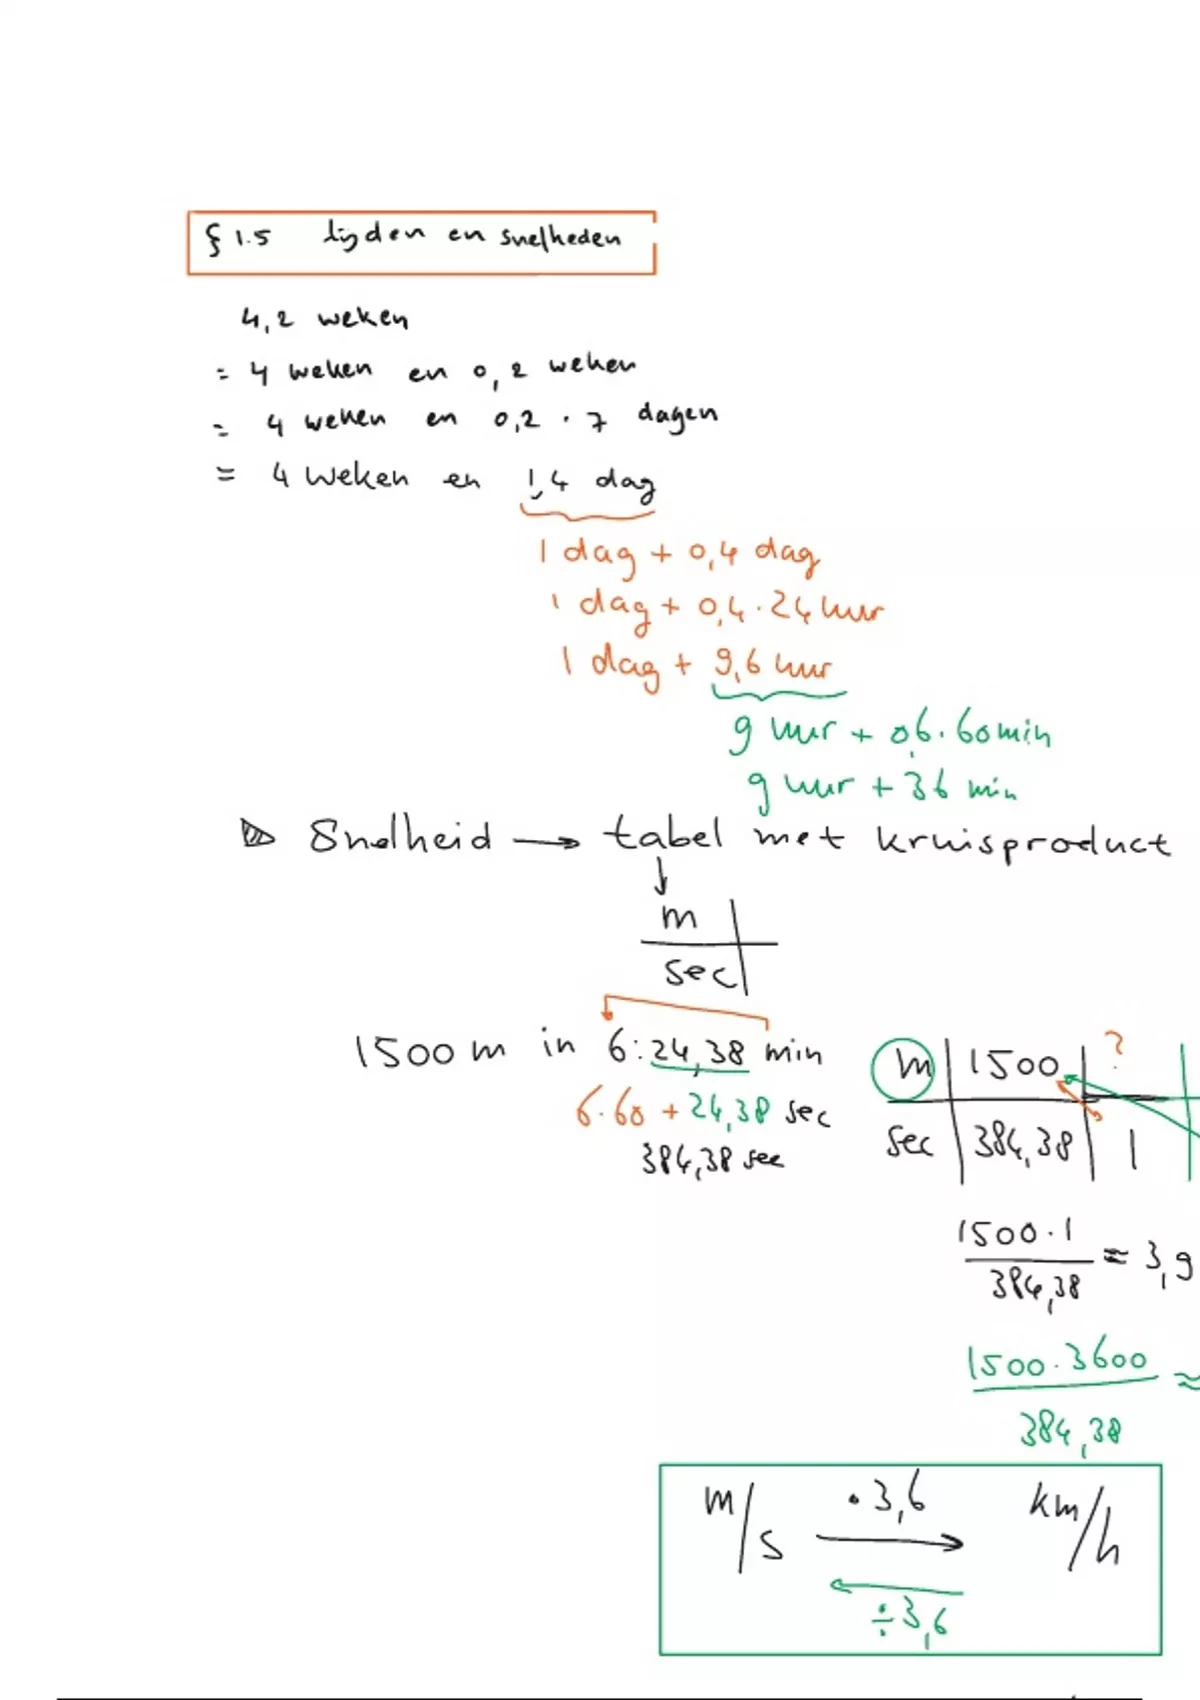 § 1.5 tijden en snelheden
4,2 weken
= 4 weken en 0,2 weken
= 4 weken en 0,2 · 7 dagen
= 4 weken en 1,4 dag
1 dag + 0,4 dag
1 dag + 0,4 · 24 uur
1 dag + 9,6 uur
9 uur + 0,6 · 60 min
9 uur + 36 min
Snelheid → tabel met kruisproduct
↓
m
sec
1500 m in 6:24,38 min
6·60 + 24,38 sec
384,38 sec
m 1500 ?
sec 384,38 1
1500 · 1
384,38
≈ 3,9
1500 · 3600
384,38
≈
m/s · 3,6 → km/h
← ÷ 3,6